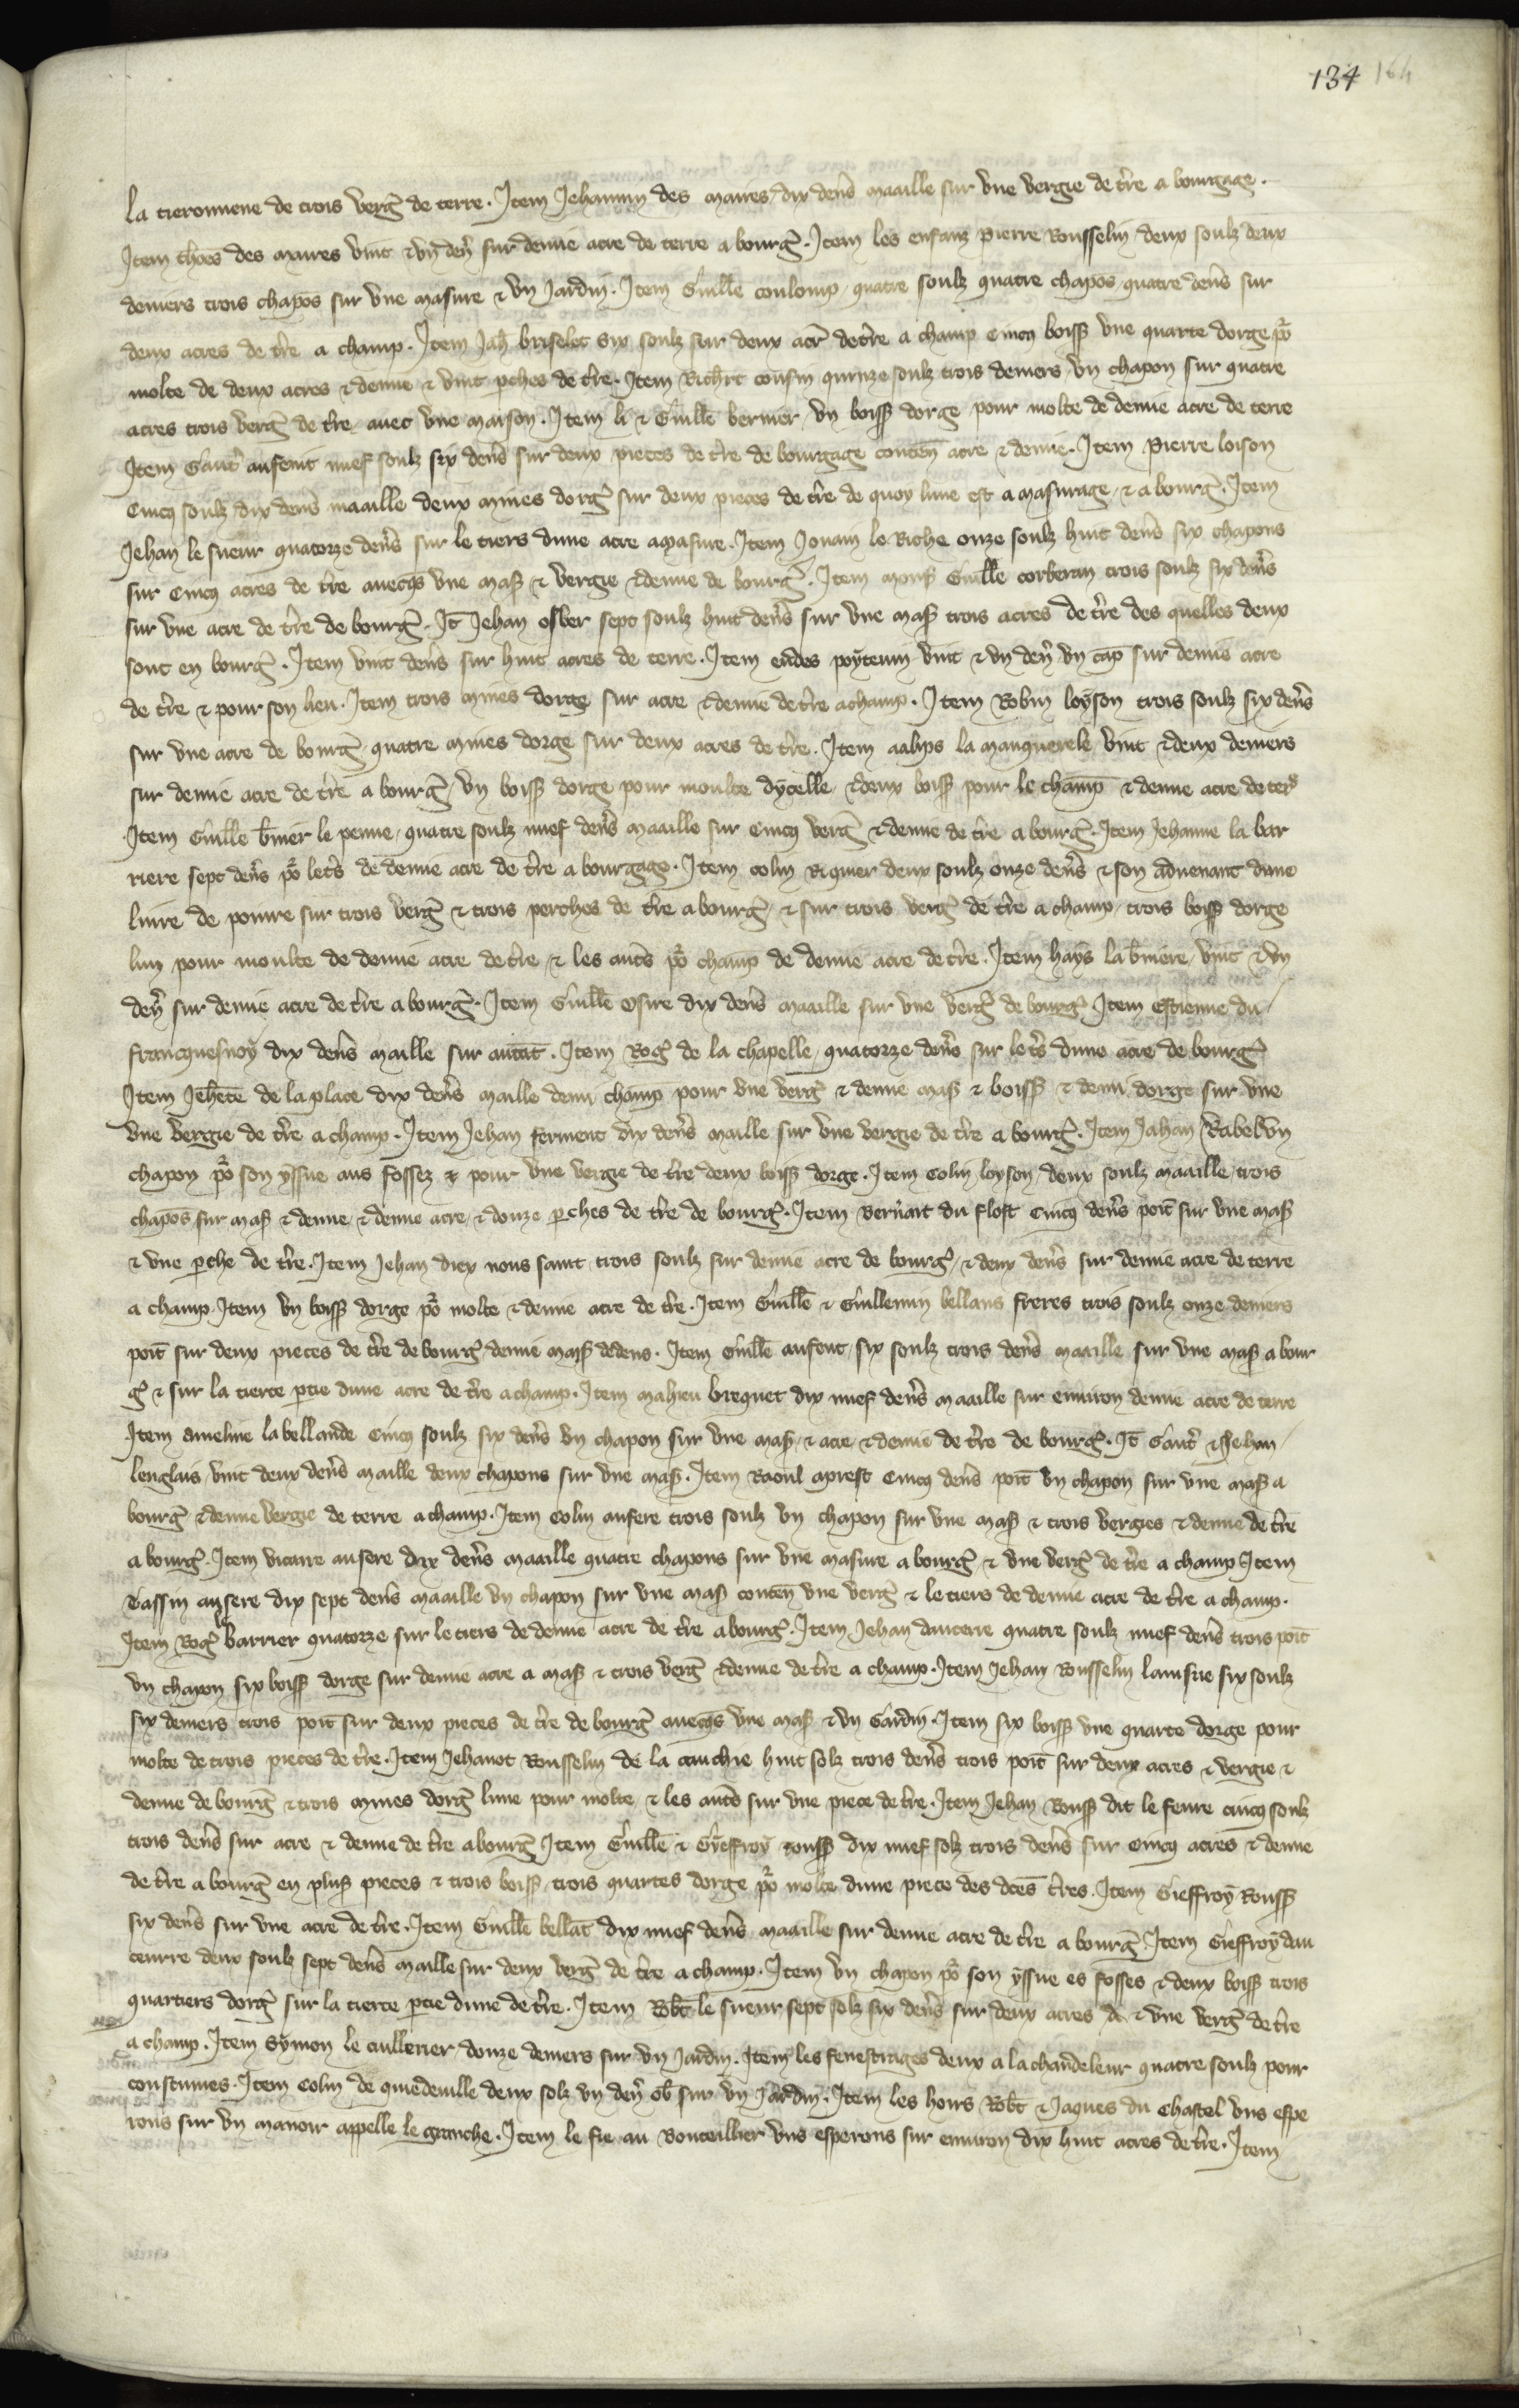 134 164
la tieronnene de trois verg̃ de terre. Item Jehannin des mares dix den̄s maaille sur vne vergie de t̃re a bourgage.
Item th̃oes des mares vint & vn den̄ sur demie acre de terre a bourg̃. Item les enfanz Pierre Rousselin deux soulz deux
deniers trois chapōs sur vne masure & vn Jardin. Item Guill̃e coulomp quatre soulz quatre chapōs quatre den̄s sur
deux acres de t̃re a champ. Item Jah̃ briselet six soulz sur deux acr̃ de t̃re a champ Cincq boiss̃ vne quarte dorge po᷑
molte de deux acres & demie & vint p̃ches de t̃re. Item Rich̃rt cousin quinze soulz trois deniers vn chapon sur quatre
acres trois verg̃ de t̃re auec vne maison. Item li & Guill̃e bernier vn boiss̃ dorge pour molte de demie acre de terre
Item Gaut̃ ansent nuef soulz six den̄s sur deux pieces de t̃re de bourgage conten̄ acre & demie. Item Pierre loison
Cincq soulz dix den̄s maaille deux mines dorg̃ sur deux pieces de t̃re de quoy lune est a masurage & a bourg̃. Item
Jehan le sueur quatorze den̄s sur le tiers dune acre amasure. Item Jouain le Riche onze soulz huit den̄s six chapons
sur Cincq acres de t̃re auecq̃s vne mas̃ & vergie & demie de bourg̃. Item mons̃ Guill̃e corberan trois soulz six den̄s
sur vne acre de t̃re de bourg̃. It̃ Jehan osber sept soulz huit den̄s sur vne mas̃ trois acres de t̃re des quelles deux
sont en bourg̃. Item vint den̄s sur huit acres de terre. Item eudes poyteuin vint & vn den̄ vn cap̃ sur demie acre
de t̃re & pour son lieu. Item trois mines dorge sur acre & demie de t̃re a champ. Item Robin loyson trois soulz six den̄s
sur vne acre de bourg̃ quatre mines dorge sur deux acres de t̃re. Item aalips la manquerele vint & deux deniers
sur demie acre de t̃re a bourg̃ vn boiss̃ dorge pour moulte dycelle & deux boiss̃ pour le champ & demie acre de ter̃
Item Guill̃e b̃nier le penne quatre soulz nuef den̄s maaille sur Cincq verg̃ & demie de t̃re a bourg̃. Item Jehanne la bar
riere sept den̄s po᷑ le t̃s de demie acre de t̃re a bourgage. Item colin Riquier deux soulz onze den̄s & son aduenant dune
liure de poiure sur trois verg̃ & trois perches de t̃re a bourg̃ & sur trois verg̃ de t̃re a champ trois boiss̃ dorge
lun pour moulte de demie acre de t̃re & les aut̃s po᷑ champ de demie acre de t̃re. Item hays la b̃niere vint & vn
den̄ sur demie acre de t̃re a bourg̃. Item Guill̃e Osire dix den̄s maaille sur vne verg̃ de bourg̃. Item Estienne du
francquesnoy dix den̄s maille sur autāt. Item Rog̃ de la chapelle quatorze den̄s sur le t̃s dune acre de bourg̃
Item Jeh̃ete de la place dix den̄s maille demi champ pour vne verg̃ & demie mas̃ & boiss̃ & demi dorge sur vne
vne vergie de t̃re a champ. Item Jehan ferment dix den̄s maille sur vne vergie de t̃re a bourg̃. Item Jahan Rabel vn
chapon po᷑ son yssue aus fossez & pour vne vergie de t̃re deux boiss̃ dorge. Item Colin loyson deux soulz maaille trois
chapōs sur mas̃ & demie & demie acre & douze p̃ches de t̃re de bourg̃. Item bern̄art du flost Cincq den̄s poit̃ sur vne mas̃
& vne p̃che de t̃re. Item Jehan diex nous saint trois soulz sur demie acre de bourg̃ & deux den̄s sur demie acre de terre
a champ. Item vn boiss̃ dorge po᷑ molte & demie acre de t̃re. Item Guill̃e & Guillemin bellans freres trois soulz onze deniers
poit̃ sur deux pieces de t̃re de bourg̃ demie mas̃ dedens. Item Guill̃e ansent six soulz trois den̄s maaille sur vne mas̃ a bour
g̃ & sur la tierce p̃tie dune acre de t̃re a champ. Item mahieu breguet dix nuef den̄s maaille sur enuiron demie acre de terre
Item Ameline la bellande Cincq soulz six den̄s vn chapon sur vne mas̃ & acre & demie de t̃re de bourg̃. It̃ Gaut̃ & Jehan
lenglais vint deux den̄s maille deux chapons sur vne mas̃. Item Raoul aprest Cincq den̄s poit̃ vn chapon sur vne mas̃ a
bourg̃ & demie vergie de terre a champ. Item colin ansere trois soulz vn chapon sur vne mas̃ & trois vergies & demie de t̃re
a bourg̃. Item vicaire ansere dix den̄s maaille quatre chapons sur vne masure a bourg̃ & vne verg̃ de t̃re a champ Item
Tassin ansere dix sept den̄s maaille vn chapon sur vne mas̃ conten̄ vne verg̃ & le tiers de demie acre de t̃re a champ.
Item Rog̃ barrier quatorze sur le tiers de demie acre de t̃re a bourg̃. Item Jehan daucerre quatre soulz nuef den̄s trois poit̃
vn chapon six boiss̃ dorge sur demie acre a mas̃ & trois verg̃ & demie de t̃re a champ. Item Jehan Rousselin lainsne six soulz
six deniers trois poit̃ sur deux pieces de t̃re de bourg̃ auecq̃s vne mas̃ & vn Gardin. Item six boiss̃ vne quarte dorge pour
molte de trois pieces de t̃re. Item Jehanot Rousselin de la cauchie huit solz trois den̄s trois poit̃ sur deux acres & vergie &
demie de bourg̃ & trois mines dorg̃ lune pour molte & les aut̃s sur vne piece de t̃re. Item Jehan Rouss̃ dit le feure cincq soulz
trois den̄s sur acre & demie de t̃re a bourg̃ Item Guill̃e & Gieffroy rouss̃ dix nuef solz trois den̄s sur Cincq acres & demie
de t̃re a bourg̃ en plus̃ pieces & trois boiss̃ trois quartes dorge po᷑ molte dune piece des dc̃es t̃res. Item Gieffroy Rouss̃
six den̄s sur vne acre de t̃re. Item Guill̃e bellāt dix nuef den̄s maaille sur demie acre de t̃re a bourg̃. Item Gieffroy dau
ceurre deux soulz sept den̄s maille sur deux verg̃ de t̃re a champ. Item vn chapon po᷑ son yssue es fosses & deux boiss̃ trois
quartiers dorg̃ sur la tierce p̃tie dune de t̃re. Item Rob̃t le sueur sept solz six den̄s sur deux acres & vne verg̃ de t̃re
a champ. Item Symon le cullerier douze deniers sur vn Jardin. Item les fenestrages deux a la chandeleur quatre soulz pour
coustumes. Item Colin de quiedeuille deux solz vn den̄ ob̃ sur vn Jardin. Item les hoirs Rob̃t & Jaques du Chastel vns espe
rons sur vn manoir appelle le granche. Item le fie au Bouteillier vns esperons sur enuiron dix huit acres de t̃re. Item